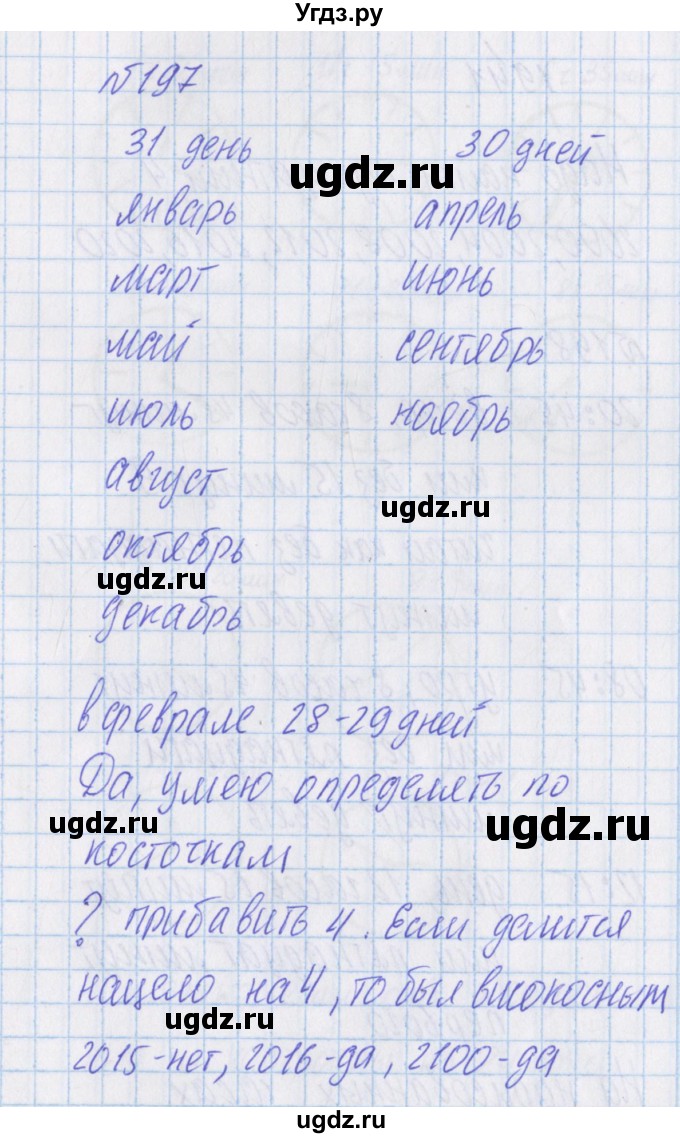 Угдз.ру
№197
31 день 30 дней
январь апрель
март июнь
май сентябрь
июль ноябрь
август
октябрь
декабрь
в феврале 28-29 дней
Да, умею определять по
косточкам
? прибавить 4. Если делится
нацело на 4, то был високосным
2015-нет, 2016-да, 2100-да
ugdz.ru
ugdz.ru
ugdz.ru
ugdz.ru
ugdz.ru
ugdz.ru
ugdz.ru